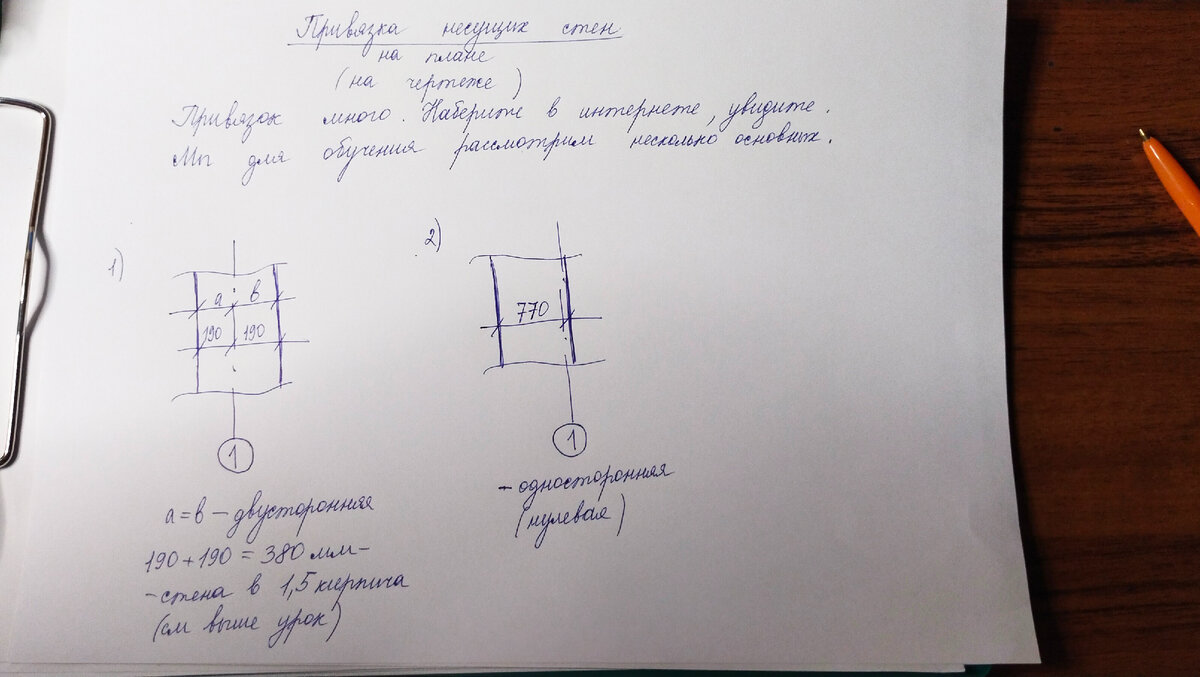 Привязка несущих стен
на плане
(на чертеже)
Привязок много. Наберите в интернете, увидите.
Мы для обучения рассмотрим несколько основных.
1)
а в
190 190
1
а=в – двусторонняя
190+190=380 мм –
– стена в 1,5 кирпича
(см выше урок)
2)
770
1
– односторонняя
(нулевая)